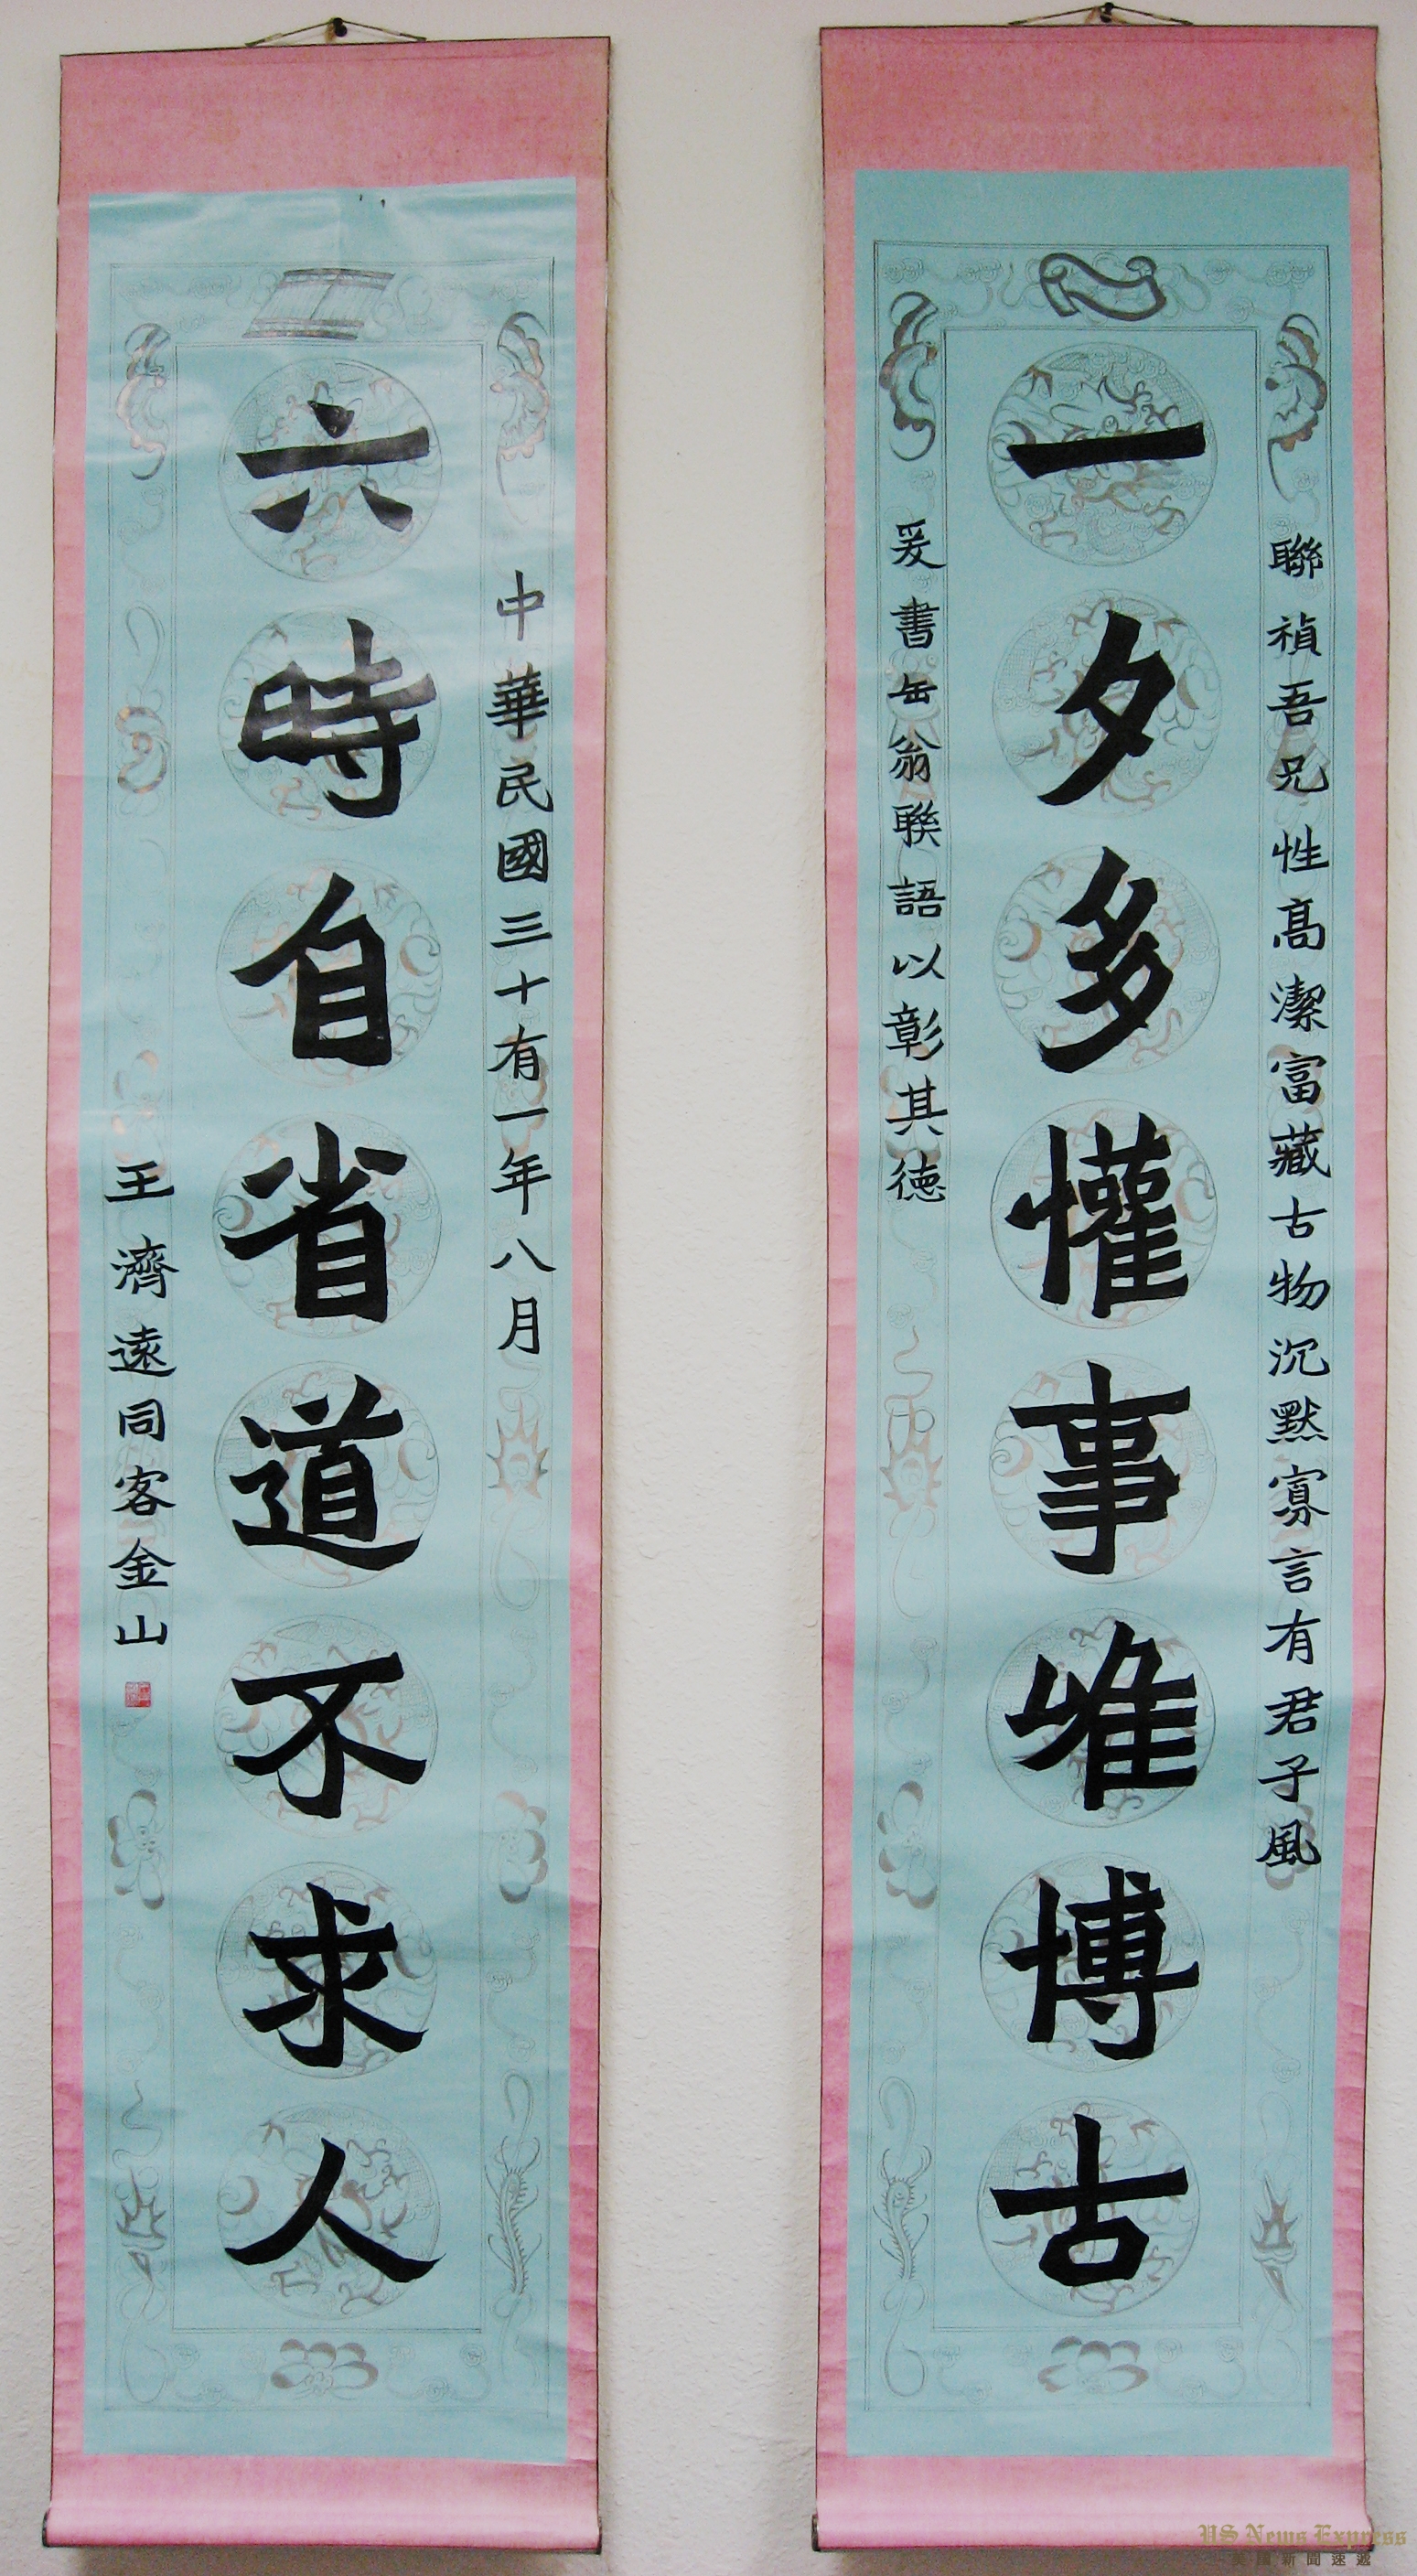 聯禎吾兄性高潔富藏古物沉默寡言有君子風
一夕多懽事唯博古
爰書缶翁聯語以彰其德
中華民國三十有一年八月
六時自省道不求人
王濟遠同客金山
US News Express
美國新聞速遞